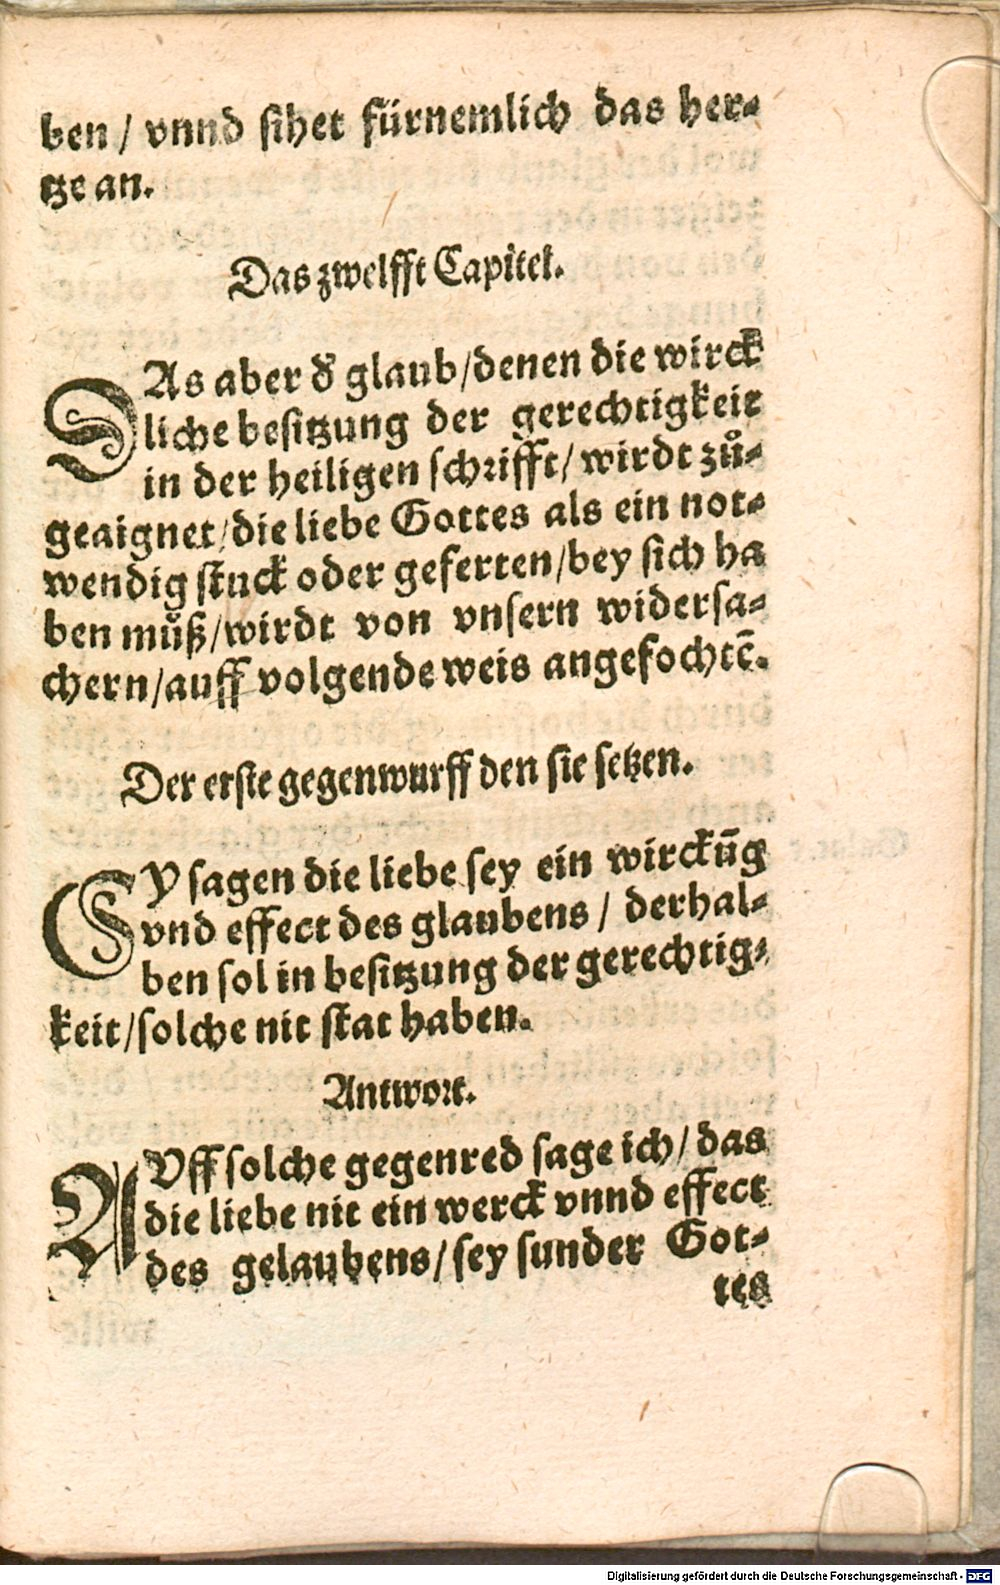 ben / vnnd sihet fürnemlich das her-
tze an.
Das zwelfft Capitel.
DAs aber d̕ glaub/denen die wirck
liche besitzung der gerechtigkeit
in der heiligen schrifft/ wirdt zů-
geaignet/die liebe Gottes als ein not-
wendig stuck oder geferten/bey sich ha
ben můß/wirdt von vnsern widersa-
chern/auff volgende weis angefochtē.
Der erste gegenwurff den sie setzen.
SY sagen die liebe sey ein wirckūg
vnd effect des glaubens / derhal-
ben sol in besitzung der gerechtig-
keit/solche nit stat haben.
Antwort.
AVff solche gegenred sage ich/ das
die liebe nit ein werck vnnd effect
des gelaubens/ sey sunder Got-
tes
Digitalisierung gefördert durch die Deutsche Forschungsgemeinschaft - DFG